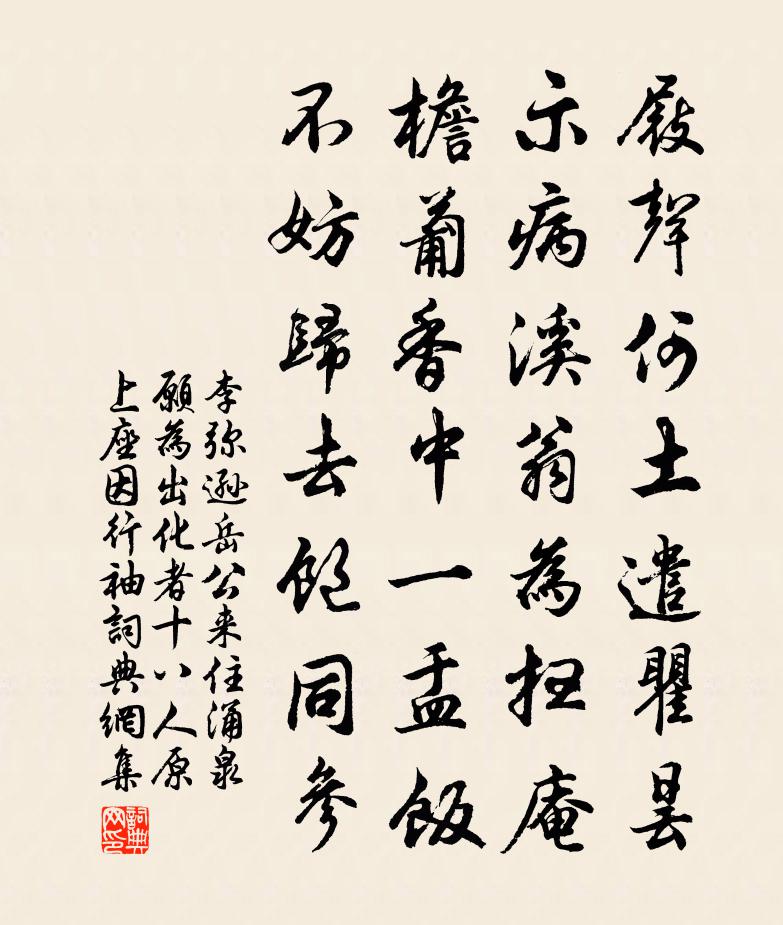 屐聲何土遣瞿昙
示病溪翁為枉庵
檐蔔香中一盂飯
不妨歸去飽同參
李弥遜岳公来住涌泉
願為出化者十八人原
上座因行袖詞典網集
詞典网印